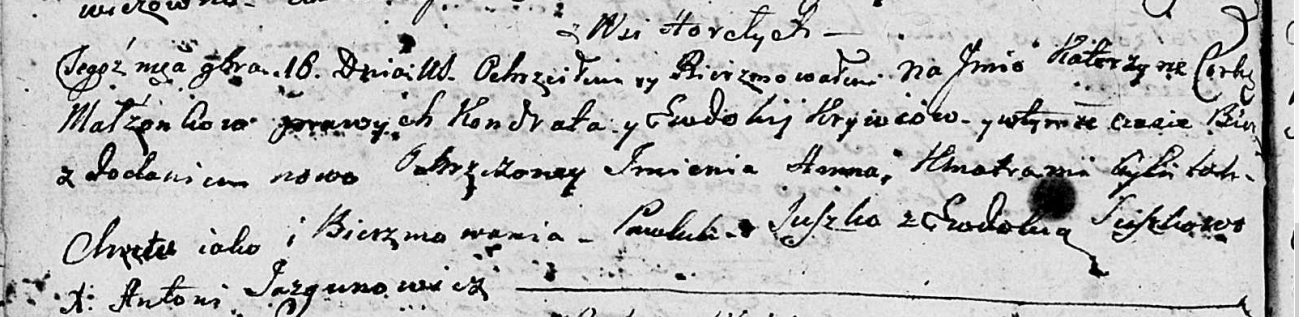 z Wsi Horełych —
Tegoż mca 9bra. 16. Dnia. Ochrzciłem y Bierzmowałem na Jmie Katerzynę Corkę
Małżonkow prawych Kondrata y Ewdokij Krywców. y wtymże czasie Bier
z dodaniem nowo Ochrzczoney Jmienia Anna, Kmotrami byli tak
Chrztu iako i Bierzmowania – Pawluk Suszko z Ewdokią Suszkowo
X: Antoni Jazgunowicz